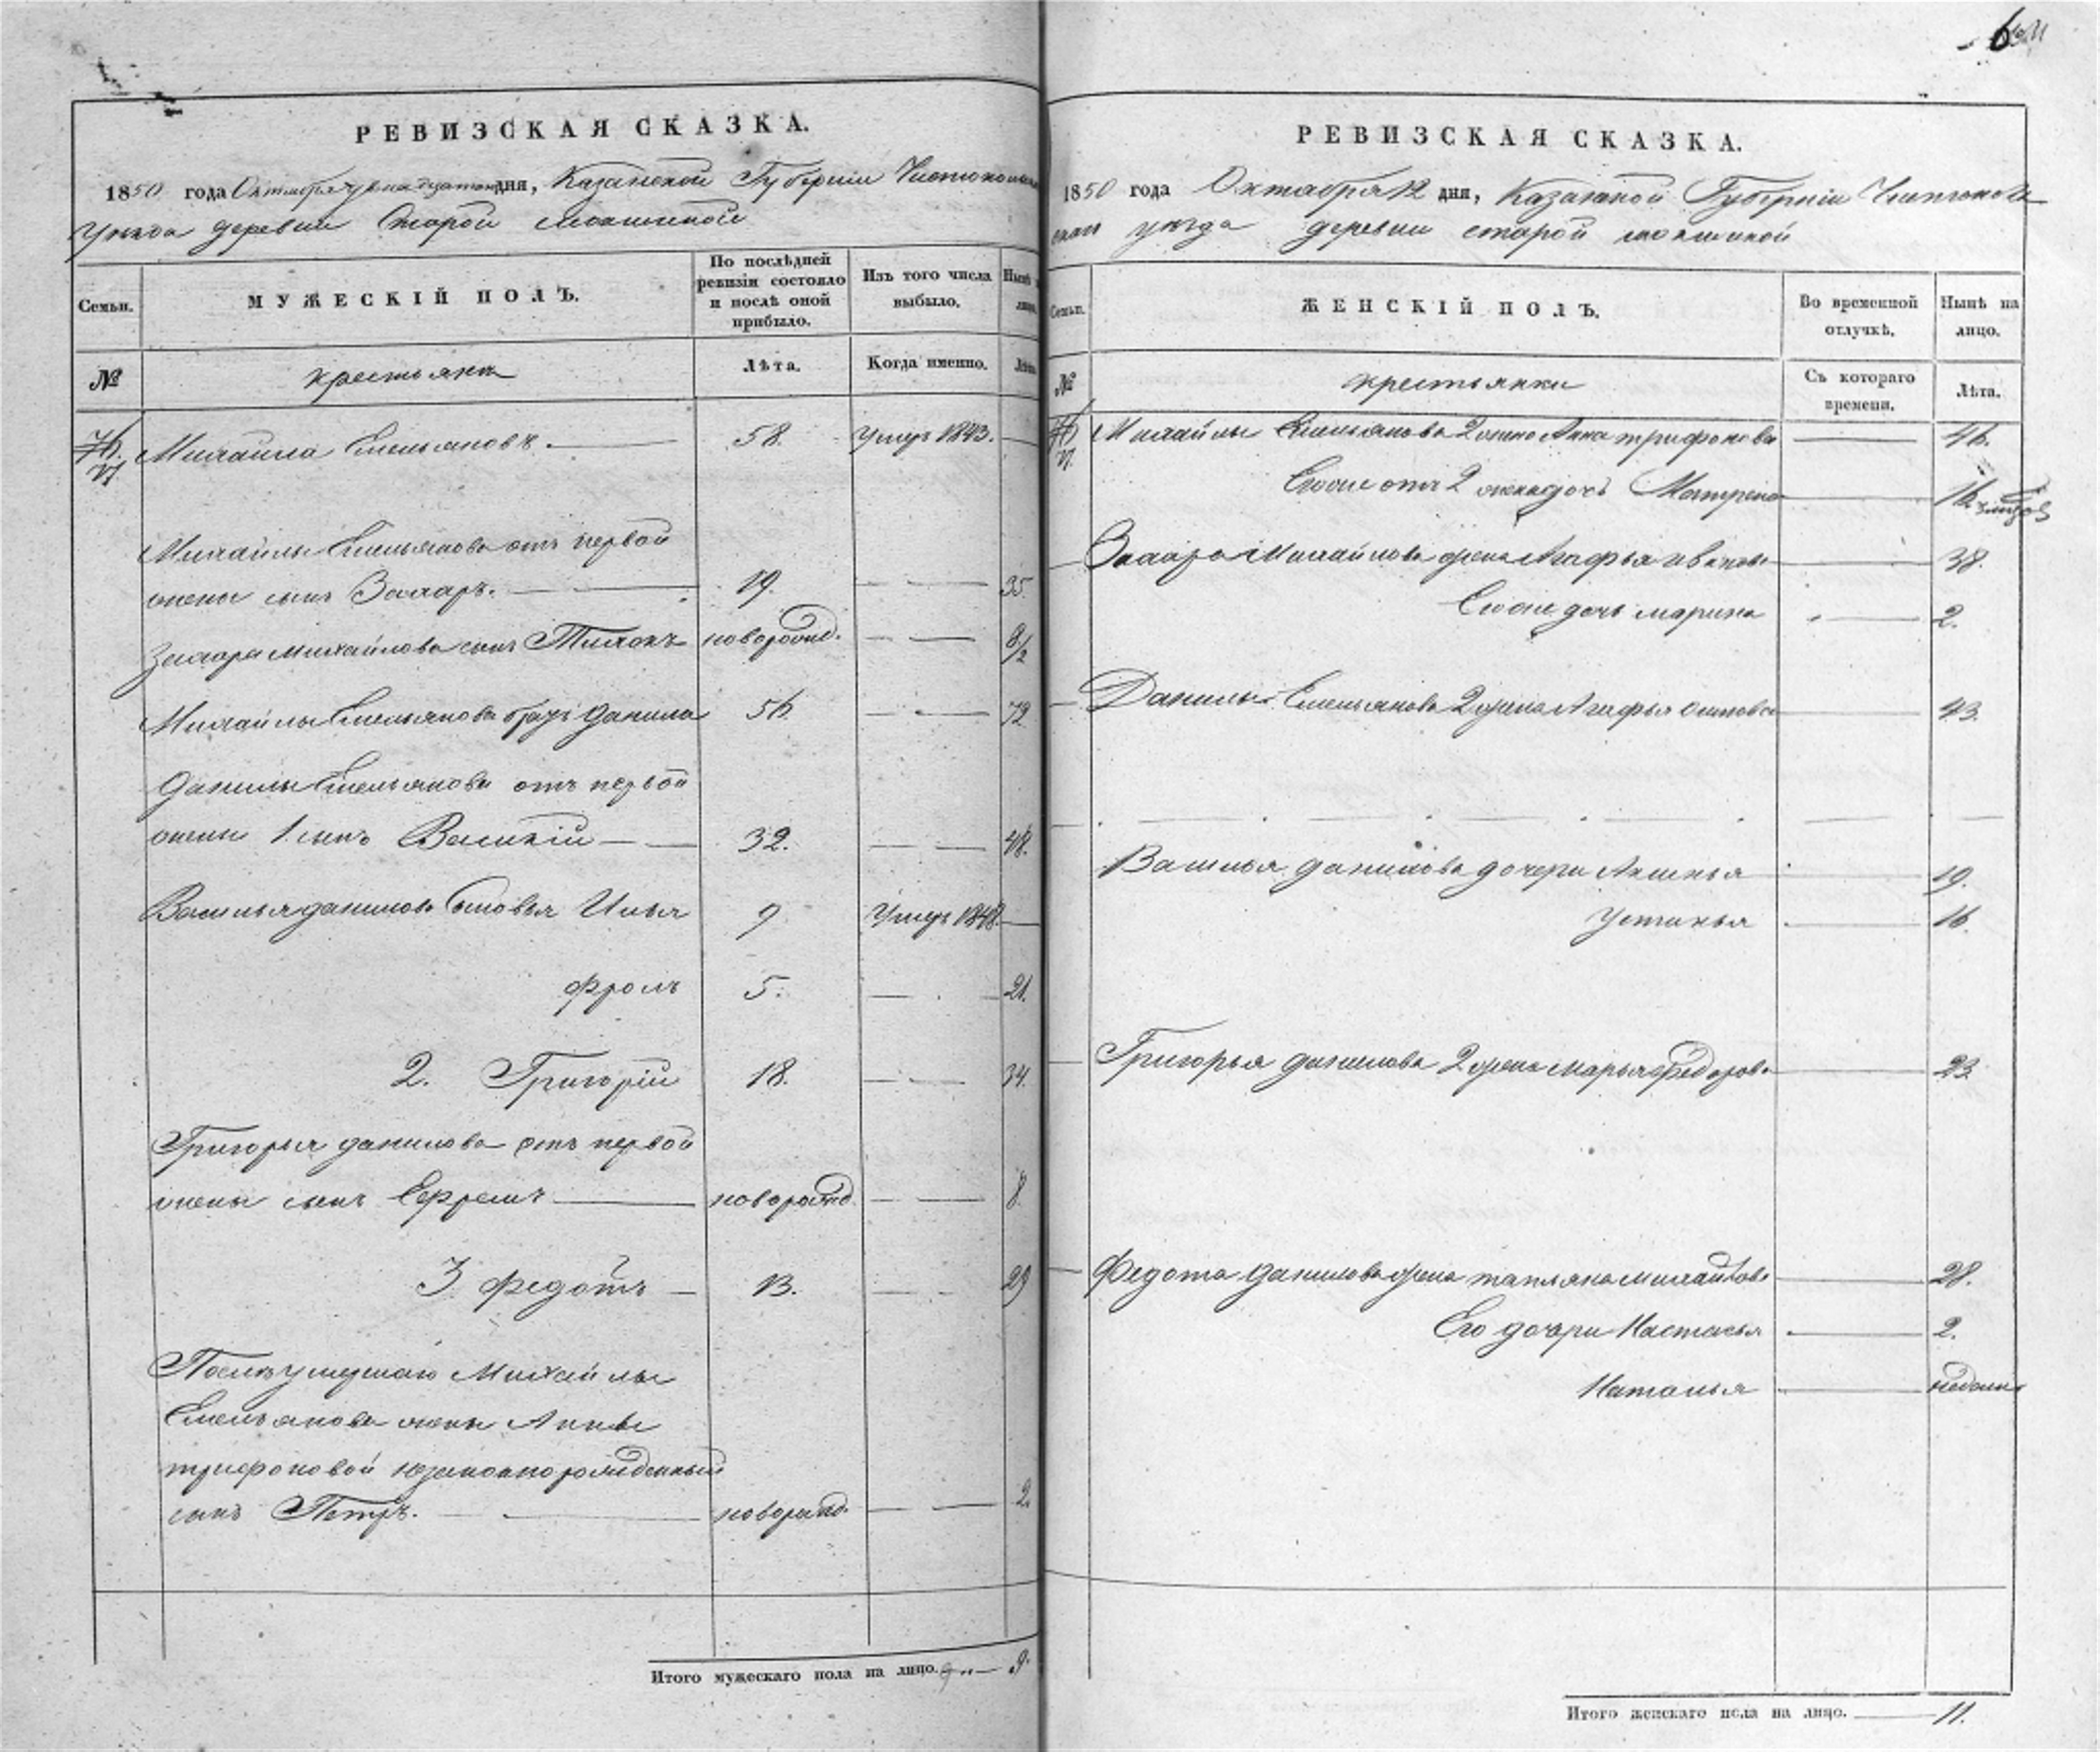 6
РЕВИЗСКАЯ СКАЗКА.
1850 года Октября двенадцатого дня, Казанской Губерніи Чистопольскаго
Уезда деревни Старой
Семьи.
МУЖЕСКІЙ ПОЛЪ.
По послѣдней ревизіи состояло и послѣ оной прибыло.
Изъ того числа выбыло.
Нынѣ
№
крестьяне
Лѣта.
Когда именно.
Лѣта
Михайла Емельяновъ. 58. умеръ 1843.
Михайлы Емельянова отъ первой
жены сынъ Захаръ. 19. 35.
Захара михайлова сынъ Тихонъ новорожд. 8/2
Михайлы Емельянова братъ Данила 56. 72
Данилы Емельянова отъ первой
жены 1. сынъ Василій 32. 48.
Василья данилова сыновья Илья 9 умеръ 1848.
фролъ 5. 21.
2. Григорій 18. 34.
Григорья данилова отъ первой
жены сынъ Ефремъ новорожд. 8.
3 Федотъ 13. 29
После умершаго Михайлы
Емельянова жены Анны
трифоновой незаконнорожденный
сынъ Петръ. новорожд. 2.
Итого мужескаго пола на лицо. 9.
РЕВИЗСКАЯ СКАЗКА.
1850 года Октября 12 дня, Казанской Губерніи Чистополь
скаго уезда деревни старой
Семьи.
ЖЕНСКІЙ ПОЛЪ.
Во временной отлучкѣ.
Нынѣ на лицо.
№
крестьянки
Съ котораго времени.
Лѣта.
Михайлы Емельянова 2 жена Анна трифонова 46.
Его же отъ 2 жены дочь Матрена 16
Захара Михайлова жена Агафья иванова 38.
Его же дочь марина 2.
Данилы Емельянова 2 жена Агафья осипова 43.
Василья данилова дочери Аксинья 19.
Устинья 16.
Григорья данилова 2 жена марья федорова 23
Федота данилова жена татьяна михайлова 28.
Его дочери Настасья 2.
Наталья недели
Итого женскаго пола на лицо. 11.